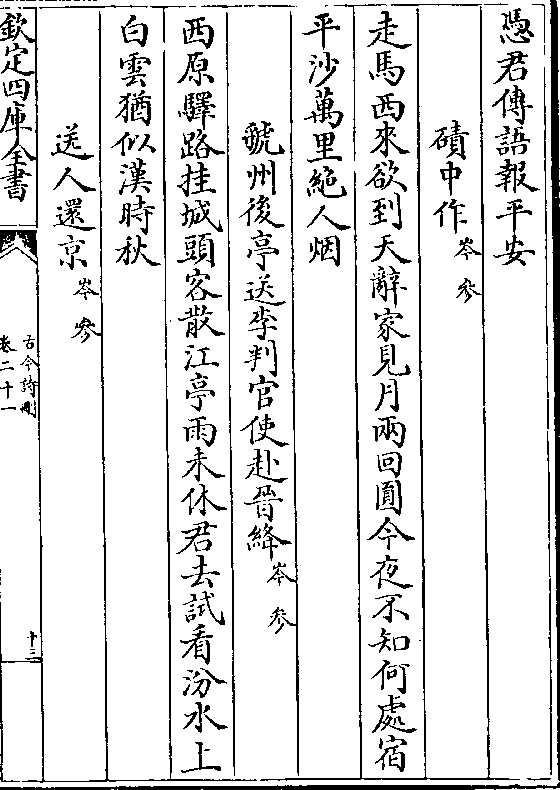 憑君傳語報平安
磧中作岑參
走馬西來欲到天辭家見月兩回圓今夜不知何處宿
平沙萬里絶人烟
虢州後亭送李判官使赴晉絳岑參
西原驛路挂城頭客散江亭雨未休君去試看汾水上
白雲猶似漢時秋
送人還京岑參
欽定四庫全書
古今詩刪
卷二十一
十三